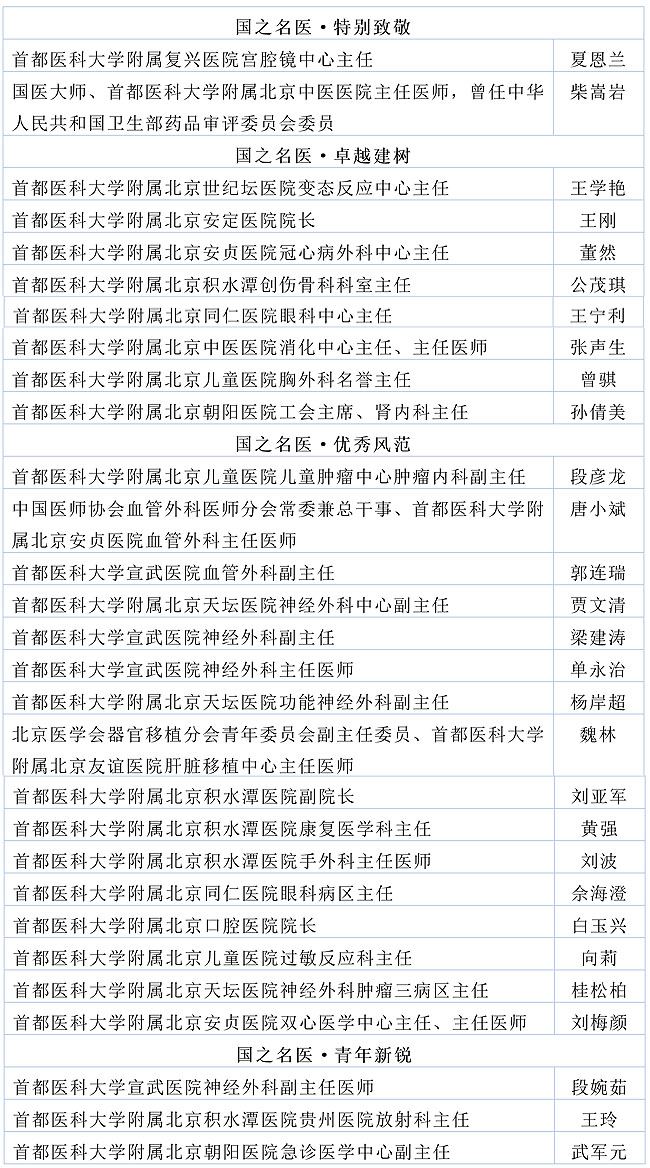 国之名医·特别致敬
首都医科大学附属复兴医院宫腔镜中心主任 夏恩兰
国医大师、首都医科大学附属北京中医医院主任医师，曾任中华 柴嵩岩
人民共和国卫生部药品审评委员会委员
国之名医·卓越建树
首都医科大学附属北京世纪坛医院变态反应中心主任 王学艳
首都医科大学附属北京安定医院院长 王刚
首都医科大学附属北京安贞医院冠心病外科中心主任 董然
首都医科大学附属北京积水潭创伤骨科科室主任 公茂琪
首都医科大学附属北京同仁医院眼科中心主任 王宁利
首都医科大学附属北京中医医院消化中心主任、主任医师 张声生
首都医科大学附属北京儿童医院胸外科名誉主任 曾骐
首都医科大学附属北京朝阳医院工会主席、肾内科主任 孙倩美
国之名医·优秀风范
首都医科大学附属北京儿童医院儿童肿瘤中心肿瘤内科副主任 段彦龙
中国医师协会血管外科医师分会常委兼总干事、首都医科大学附 唐小斌
属北京安贞医院血管外科主任医师
首都医科大学宣武医院血管外科副主任 郭连瑞
首都医科大学附属北京天坛医院神经外科中心副主任 贾文清
首都医科大学宣武医院神经外科副主任 梁建涛
首都医科大学宣武医院神经外科主任医师 单永治
首都医科大学附属北京天坛医院功能神经外科副主任 杨岸超
北京医学会器官移植分会青年委员会副主任委员、首都医科大学 魏林
附属北京友谊医院肝脏移植中心主任医师
首都医科大学附属北京积水潭医院副院长 刘亚军
首都医科大学附属北京积水潭医院康复医学科主任 黄强
首都医科大学附属北京积水潭医院手外科主任医师 刘波
首都医科大学附属北京同仁医院眼科病区主任 佘海澄
首都医科大学附属北京口腔医院院长 白玉兴
首都医科大学附属北京儿童医院过敏反应科主任 向莉
首都医科大学附属北京天坛医院神经外科肿瘤三病区主任 桂松柏
首都医科大学附属北京安贞医院双心医学中心主任、主任医师 刘梅颜
国之名医·青年新锐
首都医科大学宣武医院神经外科副主任医师 段婉茹
首都医科大学附属北京积水潭医院贵州医院放射科主任 王玲
首都医科大学附属北京朝阳医院急诊医学中心副主任 武军元